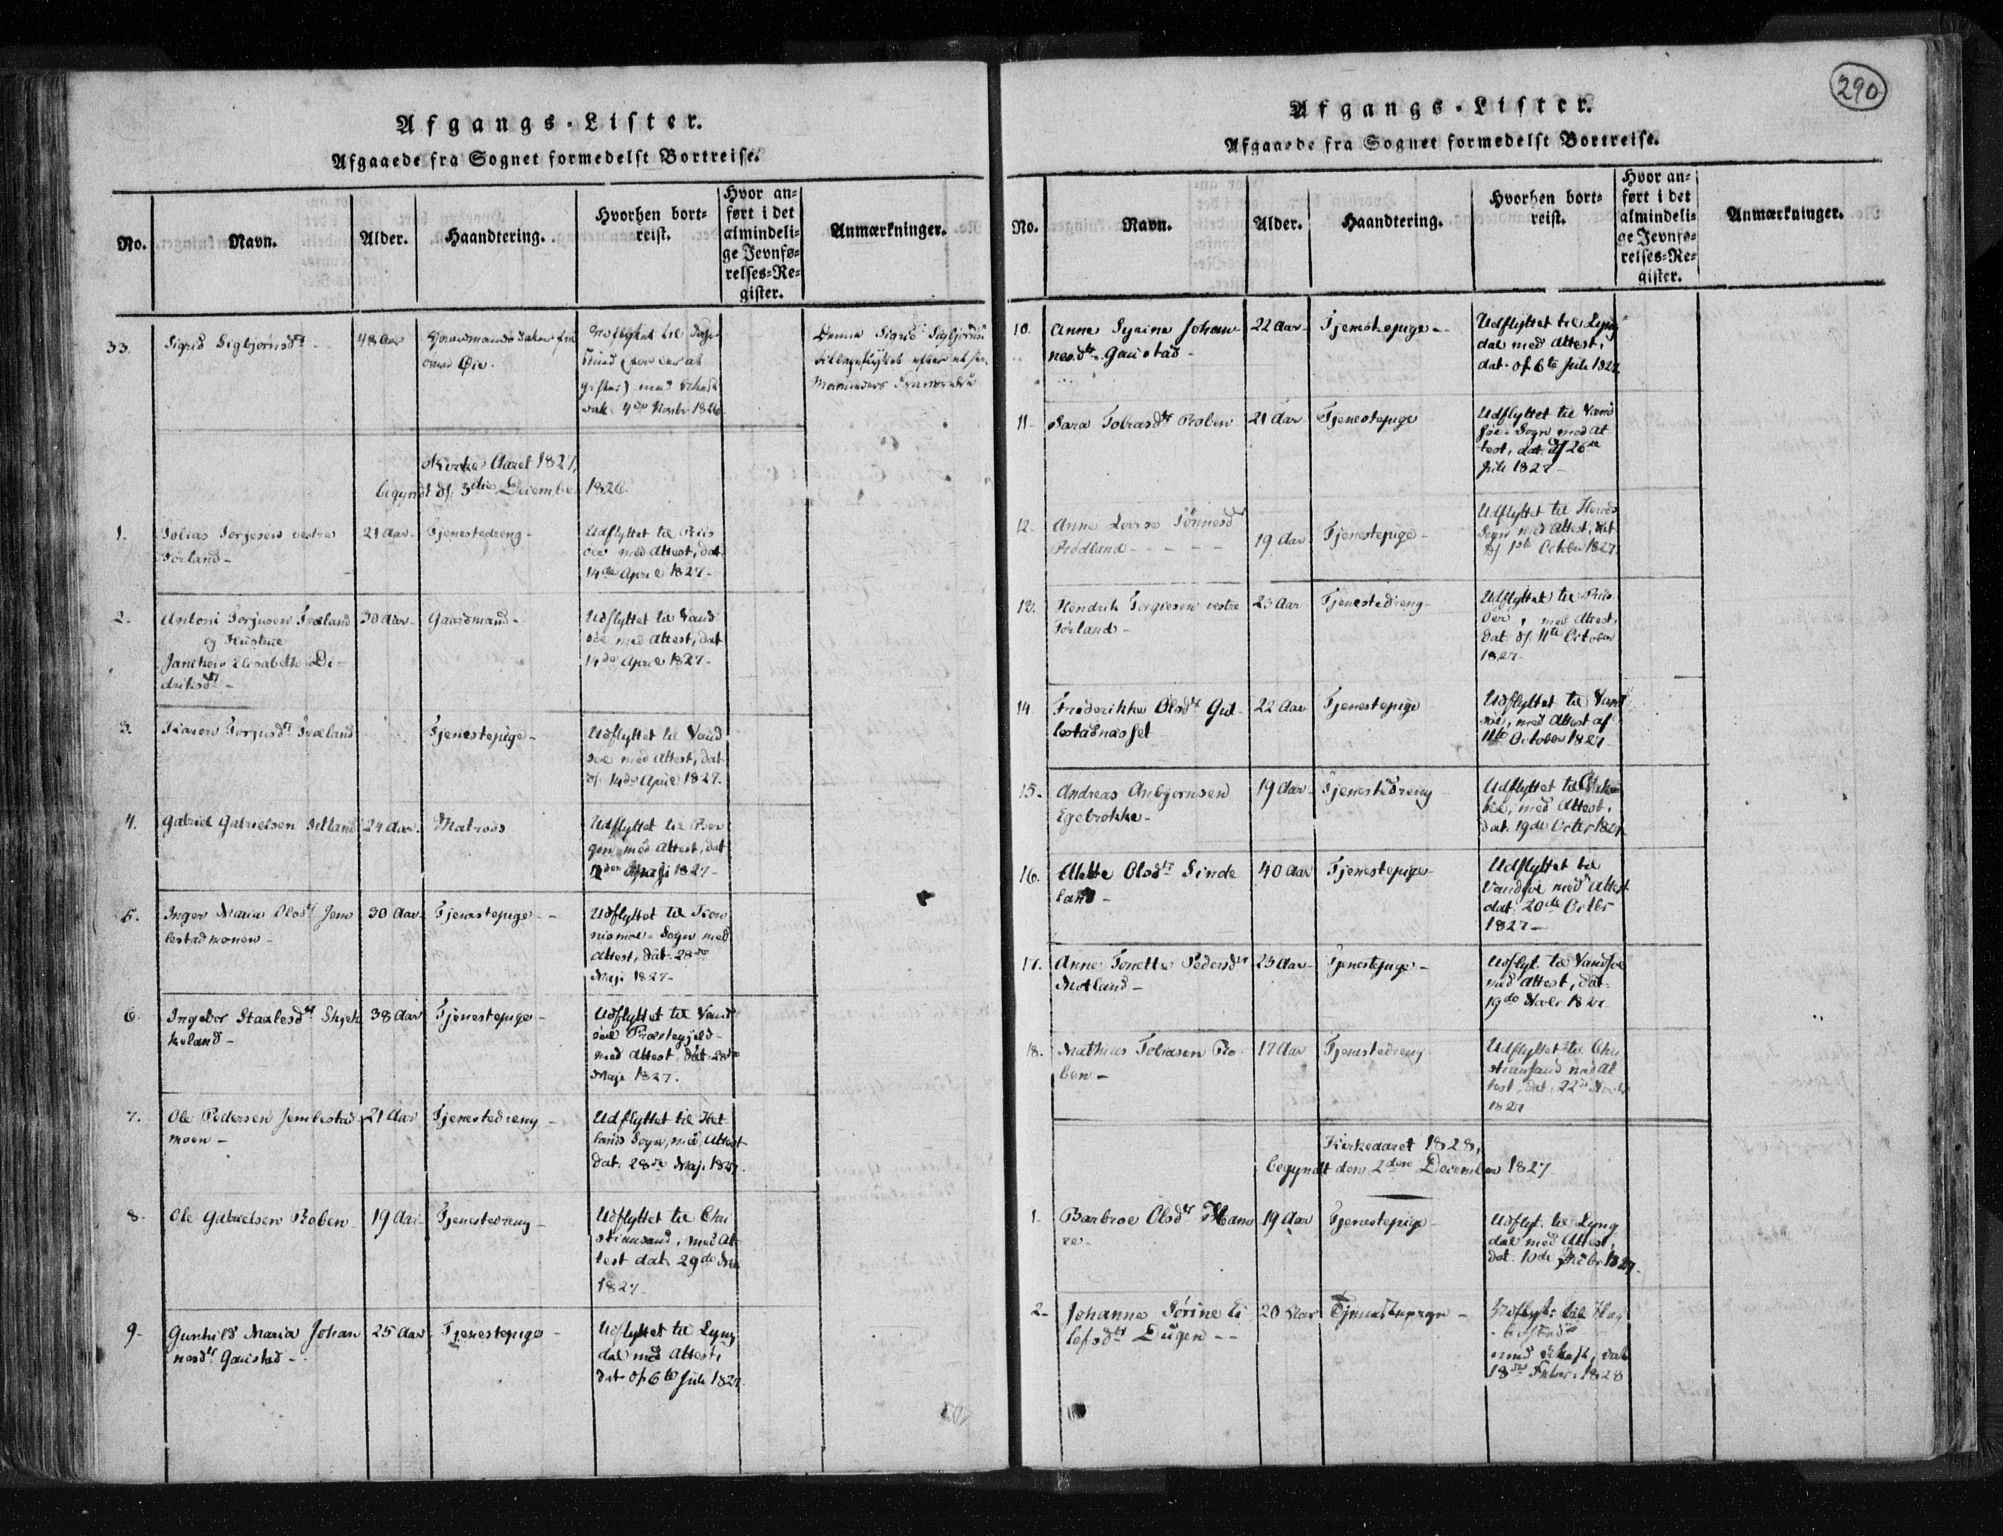 Afgangs-Lister.
Afgaaede fra Sognet formedelst Bortreise.
No.
Navn.
Alder.
Haandtering.
Hvorhen bort-
reist.
Hvor an-
ført i det
almindeli-
ge Jevnfø-
relses-Re-
gister.
Anmærkninger.
33.
Sigrid Sigbjørnsdtr
48 Aar
fra
Øie.
gifter) med Attest
dat. 4de Novbr 1826
Denne Sigrid Sigbjørnsd
Maaneders
Kirke-Aaret 1827,
begyndt d. 3die December 1826.
1.
Tobias Torjesen vestre
Førland -
21 Aar
Tjenestedreng -
Udflyttet til Riis
øer med Attest, dat.
14de April 1827.
2.
Antoni Torjusen Træland
og Hustrue
Janiken Elisabette Di-
driksdtr -
30 Aar
Gaardmand -
Udflyttet til Vand
søe med Attest, dat
14de April 1827.
3.
Karen Torjusdtr Træland
Tjenestepige -
Udflyttet til Vand
søe med Attest, dat.
d. 14de April 1827.
4.
Gabriel Gabrielsen Sætland
24 Aar.
Matroos
Udflyttet til Ber
gen med Attest, dat
1827 -
5.
Inger Maria Olsdtr Jem
lestadmonen -
30 Aar
Tjenestepige -
Udflyttet til
Sogn med
Attest, dat. 28de
Maji 1827 -
6.
Ingebor Staalesdtr Skjek
keland -
38 Aar
Tjenestepige -
Udflyttet til Vand
søe Præstegjeld
med Attest, dat. 28de
Maji 1827.
7.
Ole Pedersen Jemlestad
moen -
21 Aar
Tjenestedreng -
Udflyttet til Het
lands Sogn, med Attest
dat. 28de Maj. 1827.
8.
Ole Gabrielsen Roben -
19 Aar
Tjenestedreng -
Udflyttet til Chri
stiansand, med At-
test dat. 29de Mai
1827.
9.
Gunhild Maria Johan
nesdtr Gaustad -
25 Aar
Tjenestepige -
Udflyttet til Lyng
dal med Attest,
dat. af 6te Juli 1827.
290
Afgangs-Lister.
Afgaaede fra Sognet formedelst Bortreise.
No.
Navn.
Alder.
Haandtering.
Hvorhen bort-
reist.
Hvor an-
ført i det
almindeli-
ge Jevnfø-
relses-Re-
gister.
Anmærkninger.
10.
Anne Syrine Johan
nesdtr Gaustad -
22 Aar
Tjenestepige -
Udflyttet til Lyng
dal med Attest,
dat. af 6te Juli 1827.
11.
Sara Tobiasdtr Roben
21 Aar
Tjenestepige
Udflyttet til Vand
søe Sogn med At
test, dat. af 26de
Juli 1827 -
12.
Anne Lovise Tønnesdtr
Rødland - - - -
19 Aar
Tjenestepige -
Udflyttet til Herods
Sogn med Attest, dat
d. 1ste October 1827.
13.
Hendrik Torgiesen vestre
Førland -
23 Aar
Tjenestedreng -
Udflyttet til Riis
øer, med Attest,
dat. d. 11te October
1827 -
14.
Frederikke Olsdtr Gul-
lestadnasset -
22 Aar
Tjenestepige
Udflyttet til Vand
søe, med Attest af
11te October 1827.
15.
Andreas Anbjørnsen
Egebrokke -
19 Aar
Tjenestedreng
Udflyttet til
med Attest,
dat. 19de Octbr 1827
16.
Mette Olsdtr Sinde
land -
40 Aar
Tjenestepige -
Udflyttet til
Vandsøe med Attest
dat. 20de Octbr
1827 -
17.
Anne Tonette Pedersdtr
Motland -
23 Aar
Tjenestepige -
Udflyt. til Vandsøe
med Attest, dat.
19de Novbr 1827.
18.
Mathias Tobiasen Ro-
ben -
17 Aar
Tjenestedreng
Udflyttet til Chri
stiansand med At
test, dat. 22de Novbr
1827
Kirkeaaret 1828,
begyndt den 2den December 1827
1.
Barbroe Olsdtr Ham
re -
19 Aar
Tjenestepige -
Udflyt. til Lyng
dal med Attest,
dat. 10de 1827.
2.
Johanne Tørine Ei
lefsdtr Dugen - -
20 Aar
Tjenestepige -
Udflyt. til
med Attest, dat
18de Febr. 1828